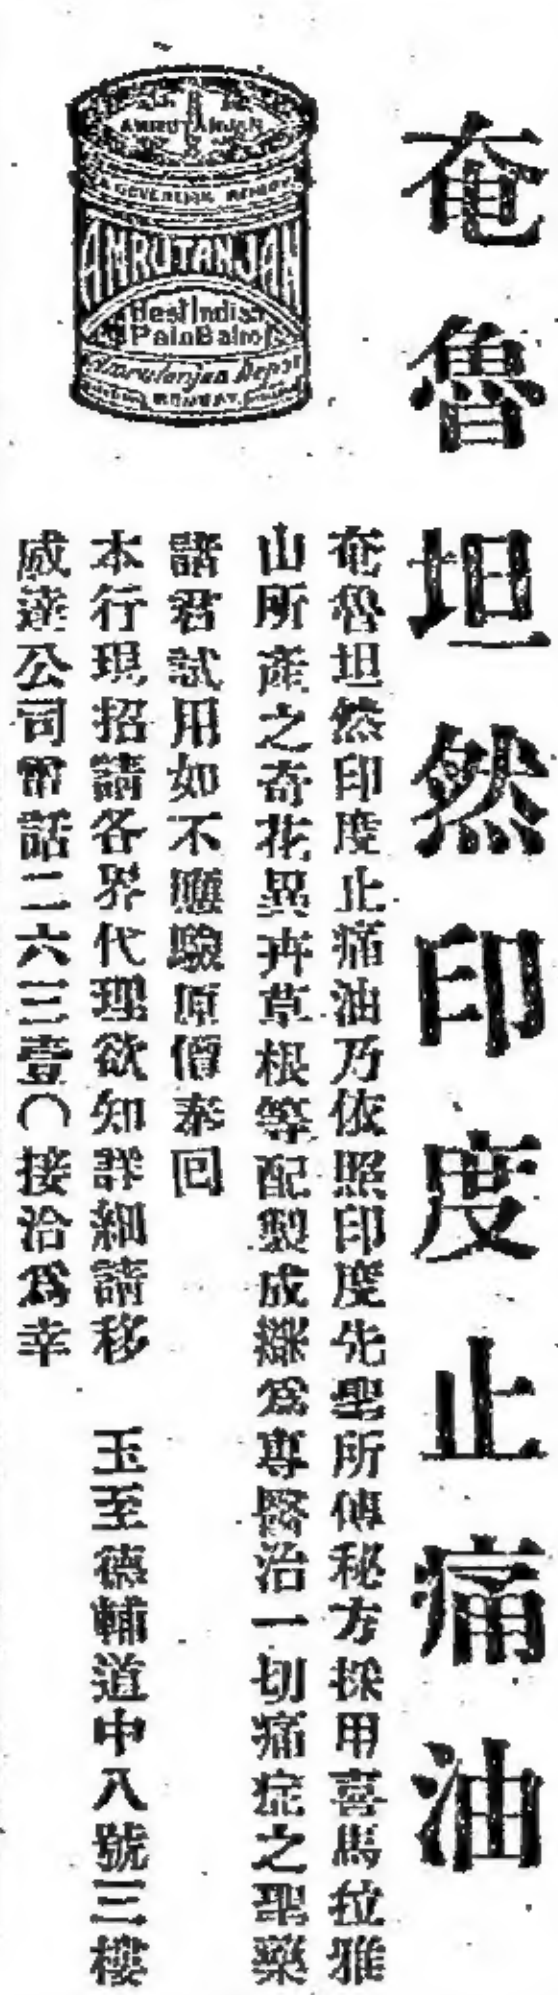 奄魯坦然印度止痛油
AMRUTANJAN
AMRUTANJAN
Best Indian
Pain Balm
Amrutanjan Depot
BOMBAY
奄魯坦然印度止痛油乃依照印度先聖所傳秘方採用喜馬拉雅
山所產之奇花異卉草根等配製成 爲專醫治一切痛症之聖藥
諸君試用如不應驗原價奉回
本行現招請各界代理欲知詳細請移 玉至德輔道中八號三樓
威達公司電話二六三壹〇接洽爲幸